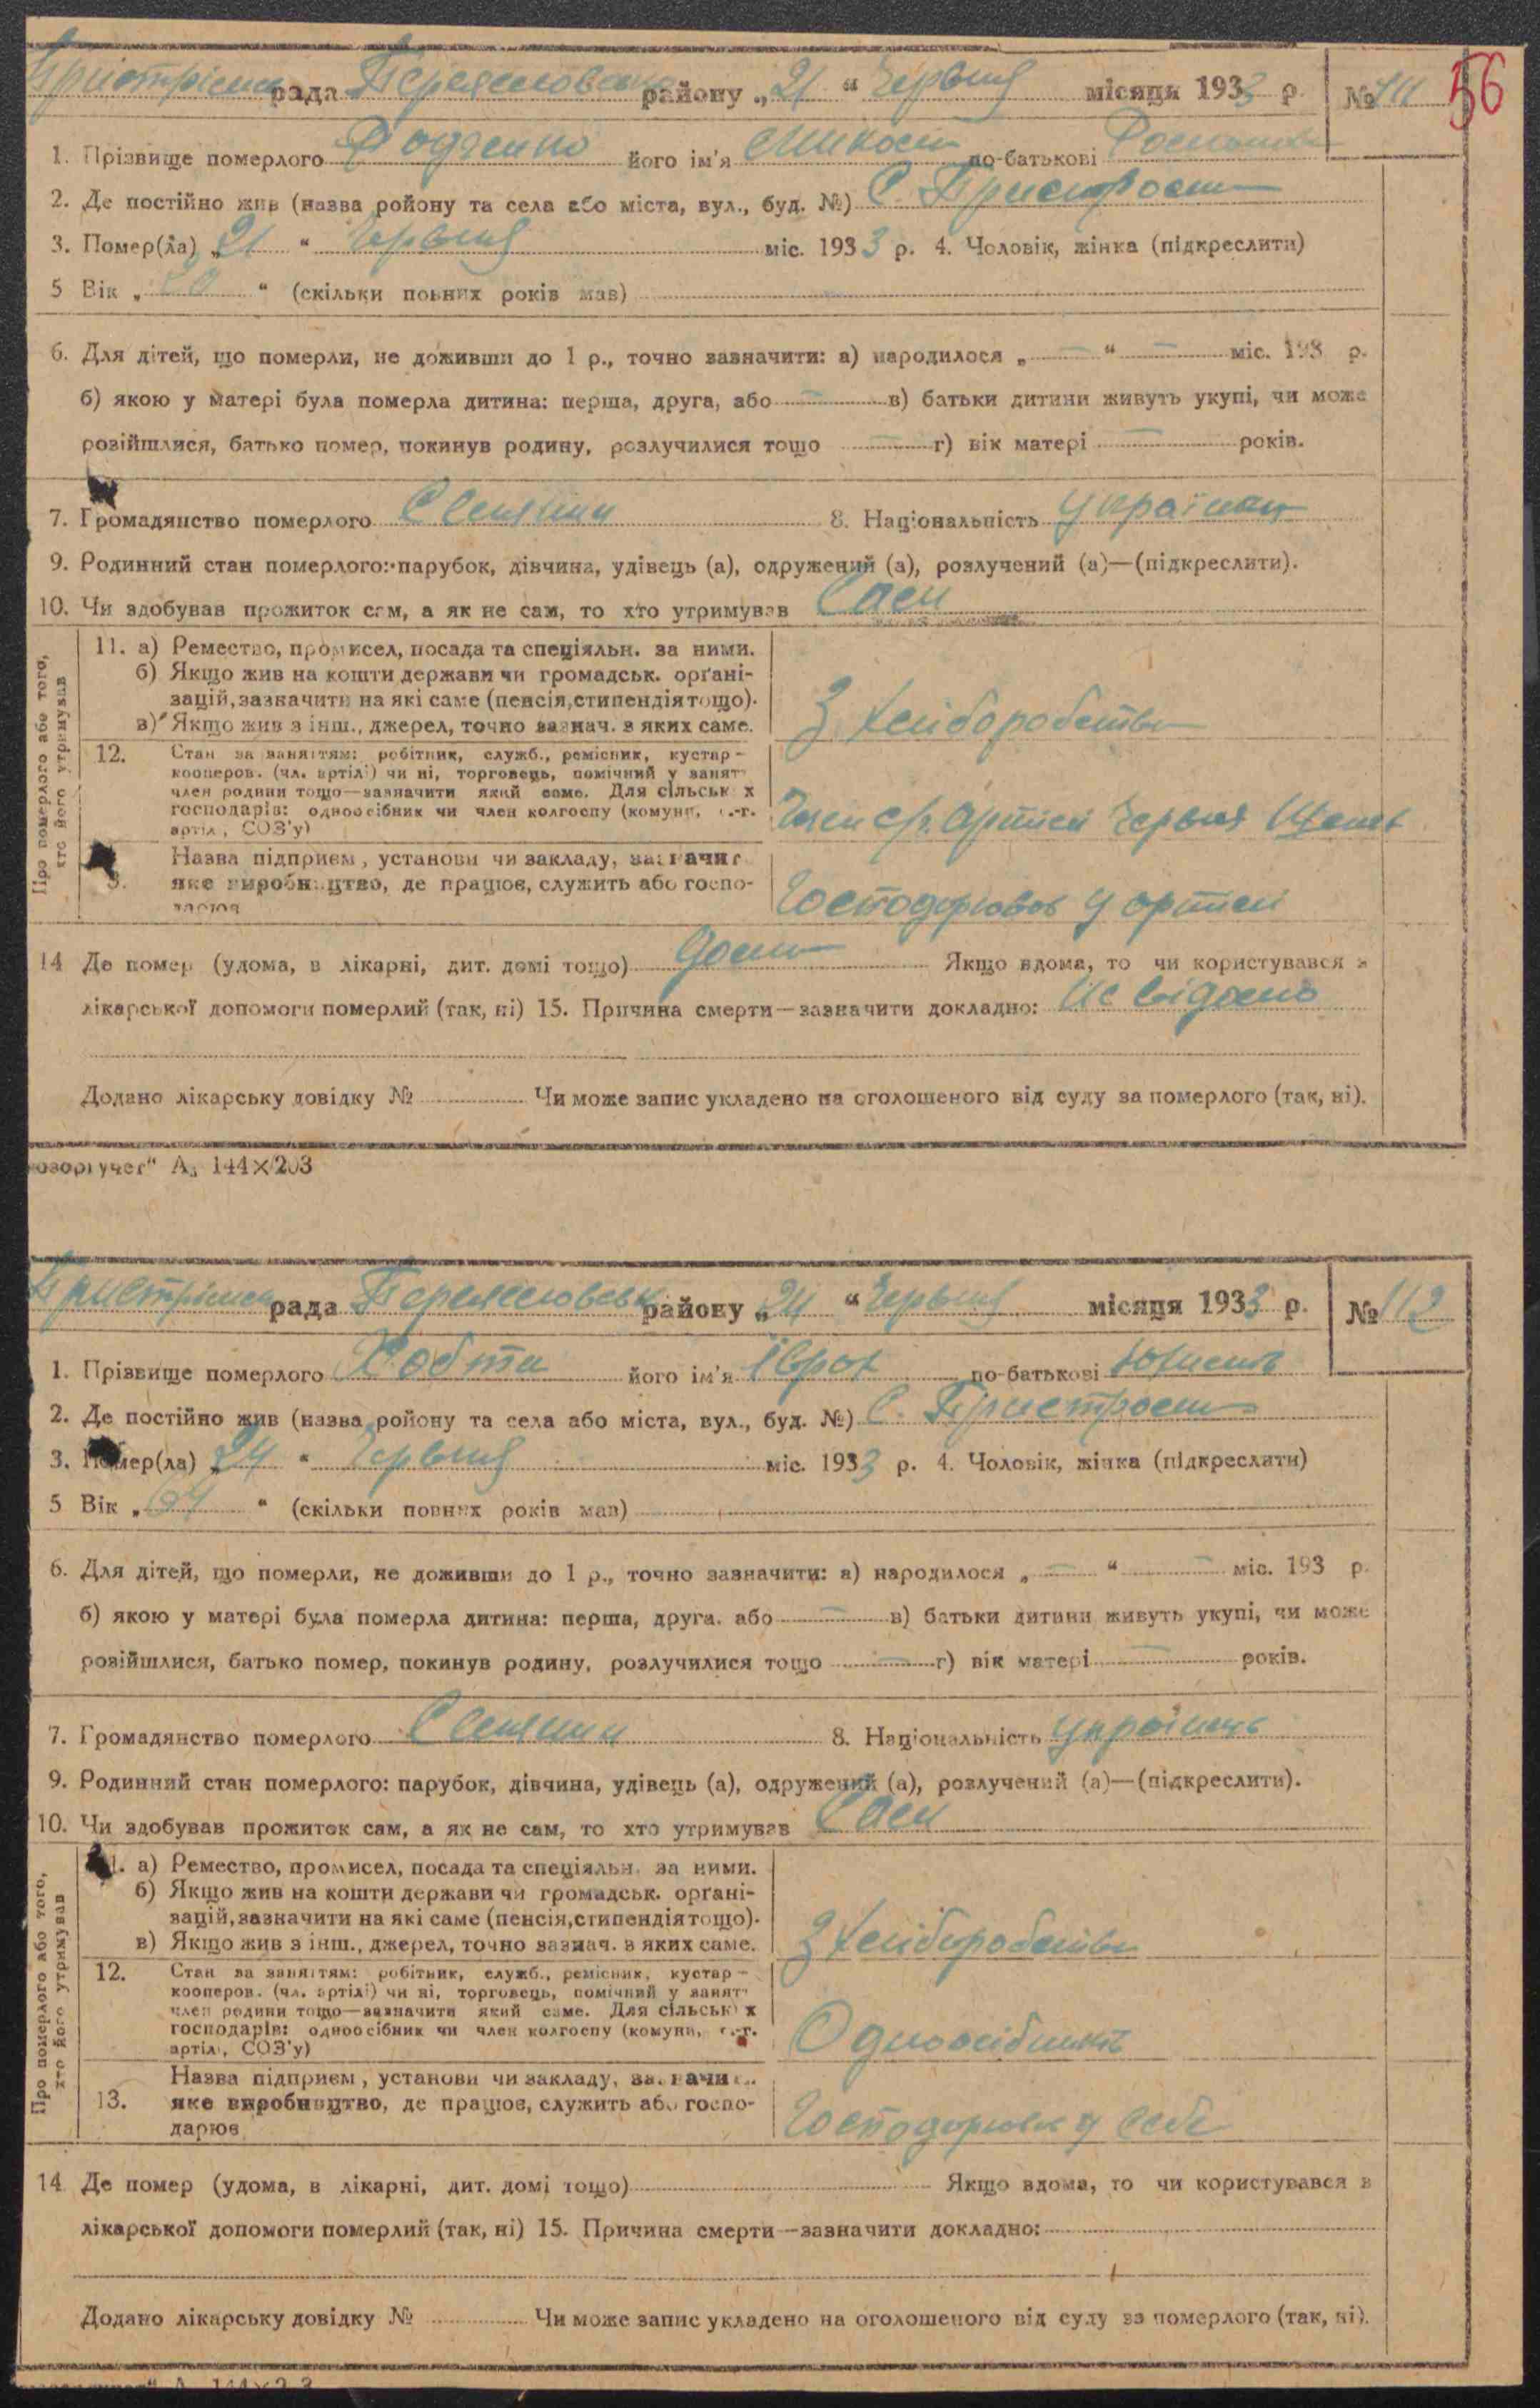 Пристрімська рада Переяславськ району „21 “ Червня місяця 1933 р. № 111 56
1. Прізвище померлого його ім'я Микола по-батькові
2. Де постійно жив (назва ройону та села або міста, вул., буд. №) С. Пристроми
3. Помер(ла) „21 “ Червня міс. 1933 р. 4. Чоловік, жінка (підкреслити)
5 Вік „ “ (скільки повних років мав)
6. Для дітей, що померли, не доживши до 1 р., точно зазначити: а) народилося „ — “ — міс. 193 р.
б) якою у матері була померла дитина: перша, друга, або — в) батьки дитини живуть укупі, чи може
розійшлися, батько помер, покинув родину, розлучилися тощо — г) вік матері — років.
7. Громадянство померлого Селянин 8. Національність Українец
9. Родинний стан померлого: парубок, дівчина, удівець (а), одружений (а), розлучений (а)—(підкреслити).
10. Чи здобував прожиток сам, а як не сам, то хто утримував Сам
Про померлого або того, хто його утримував
11. а) Ремество, промисел, посада та спеціяльн. за ними.
б) Якщо жив на кошти держави чи громадськ. орґані-
зацій, зазначити на які саме (пенсія, стипендія тощо).
в) Якщо жив з інш., джерел, точно зазнач. з яких саме.
З хліборобства
12. Стан за заняттям: робітник, служб., ремісник, кустар-
кооперов. (чл. артілі) чи ні, торговець, помічний у занятт
член родини тощо—зазначити який саме. Для сільськ х
господарів: одноосібник чи член колгоспу (комуни, с.-г.
артіл, СОЗ'у)
Член с/г. артілі Червня
Назва підприєм, установи чи закладу, зазначит
3. яке виробництво, де працює, служить або госпо-
дарює
Господорював у артілі
14 Де помер (удома, в лікарні, дит. домі тощо) Дома Якщо вдома, то чи користувався з
лікарської допомоги померлий (так, ні) 15. Причина смерти—зазначити докладно: Не відомо
Додано лікарську довідку № Чи може запис укладено на оголошеного від суду за померлого (так, ні).
озоргучет“ А₅ 144×203
Пристрімська рада Переяславськ району „24 “ Червня місяця 1933 р. № 112
1. Прізвище померлого Ховта його ім'я по-батькові
2. Де постійно жив (назва ройону та села або міста, вул., буд. №) С. Пристроми
3. Помер(ла) „24 “ Червня міс. 1933 р. 4. Чоловік, жінка (підкреслити)
5 Вік „64 “ (скільки повних років мав)
6. Для дітей, що померли, не доживши до 1 р., точно зазначити: а) народилося „ — “ — міс. 193 р.
б) якою у матері була померла дитина: перша, друга. або — в) батьки дитини живуть укупі, чи може
розійшлися, батько помер, покинув родину, розлучилися тощо — г) вік матері — років.
7. Громадянство померлого Селянин 8. Національність Українець
9. Родинний стан померлого: парубок, дівчина, удівець (а), одружений (а), розлучений (а)—(підкреслити).
10. Чи здобував прожиток сам, а як не сам, то хто утримував Сам
Про померлого або того, хто його утримував
1. а) Ремество, промисел, посада та спеціяльн. за ними.
б) Якщо жив на кошти держави чи громадськ. орґані-
зацій, зазначити на які саме (пенсія, стипендія тощо).
в) Якщо жив з інш., джерел, точно зазнач. з яких саме.
З хліборобства
12. Стан за заняттям: робітник, служб., ремісник, кустар-
кооперов. (чл. артілі) чи ні, торговець, помічний у занятт
член родини тощо—зазначити який саме. Для сільськ х
господарів: одноосібник чи член колгоспу (комуни, с.-г.
артіл, СОЗ'у)
Одноосібникъ
Назва підприєм, установи чи закладу, зазначи
13. яке виробництво, де працює, служить або госпо-
дарює
Господорював у себе
14 Де помер (удома, в лікарні, дит. домі тощо) Якщо вдома, то чи користувався з
лікарської допомоги померлий (так, ні) 15. Причина смерти—зазначити докладно:
Додано лікарську довідку № Чи може запис укладено на оголошеного від суду за померлого (так, ні).